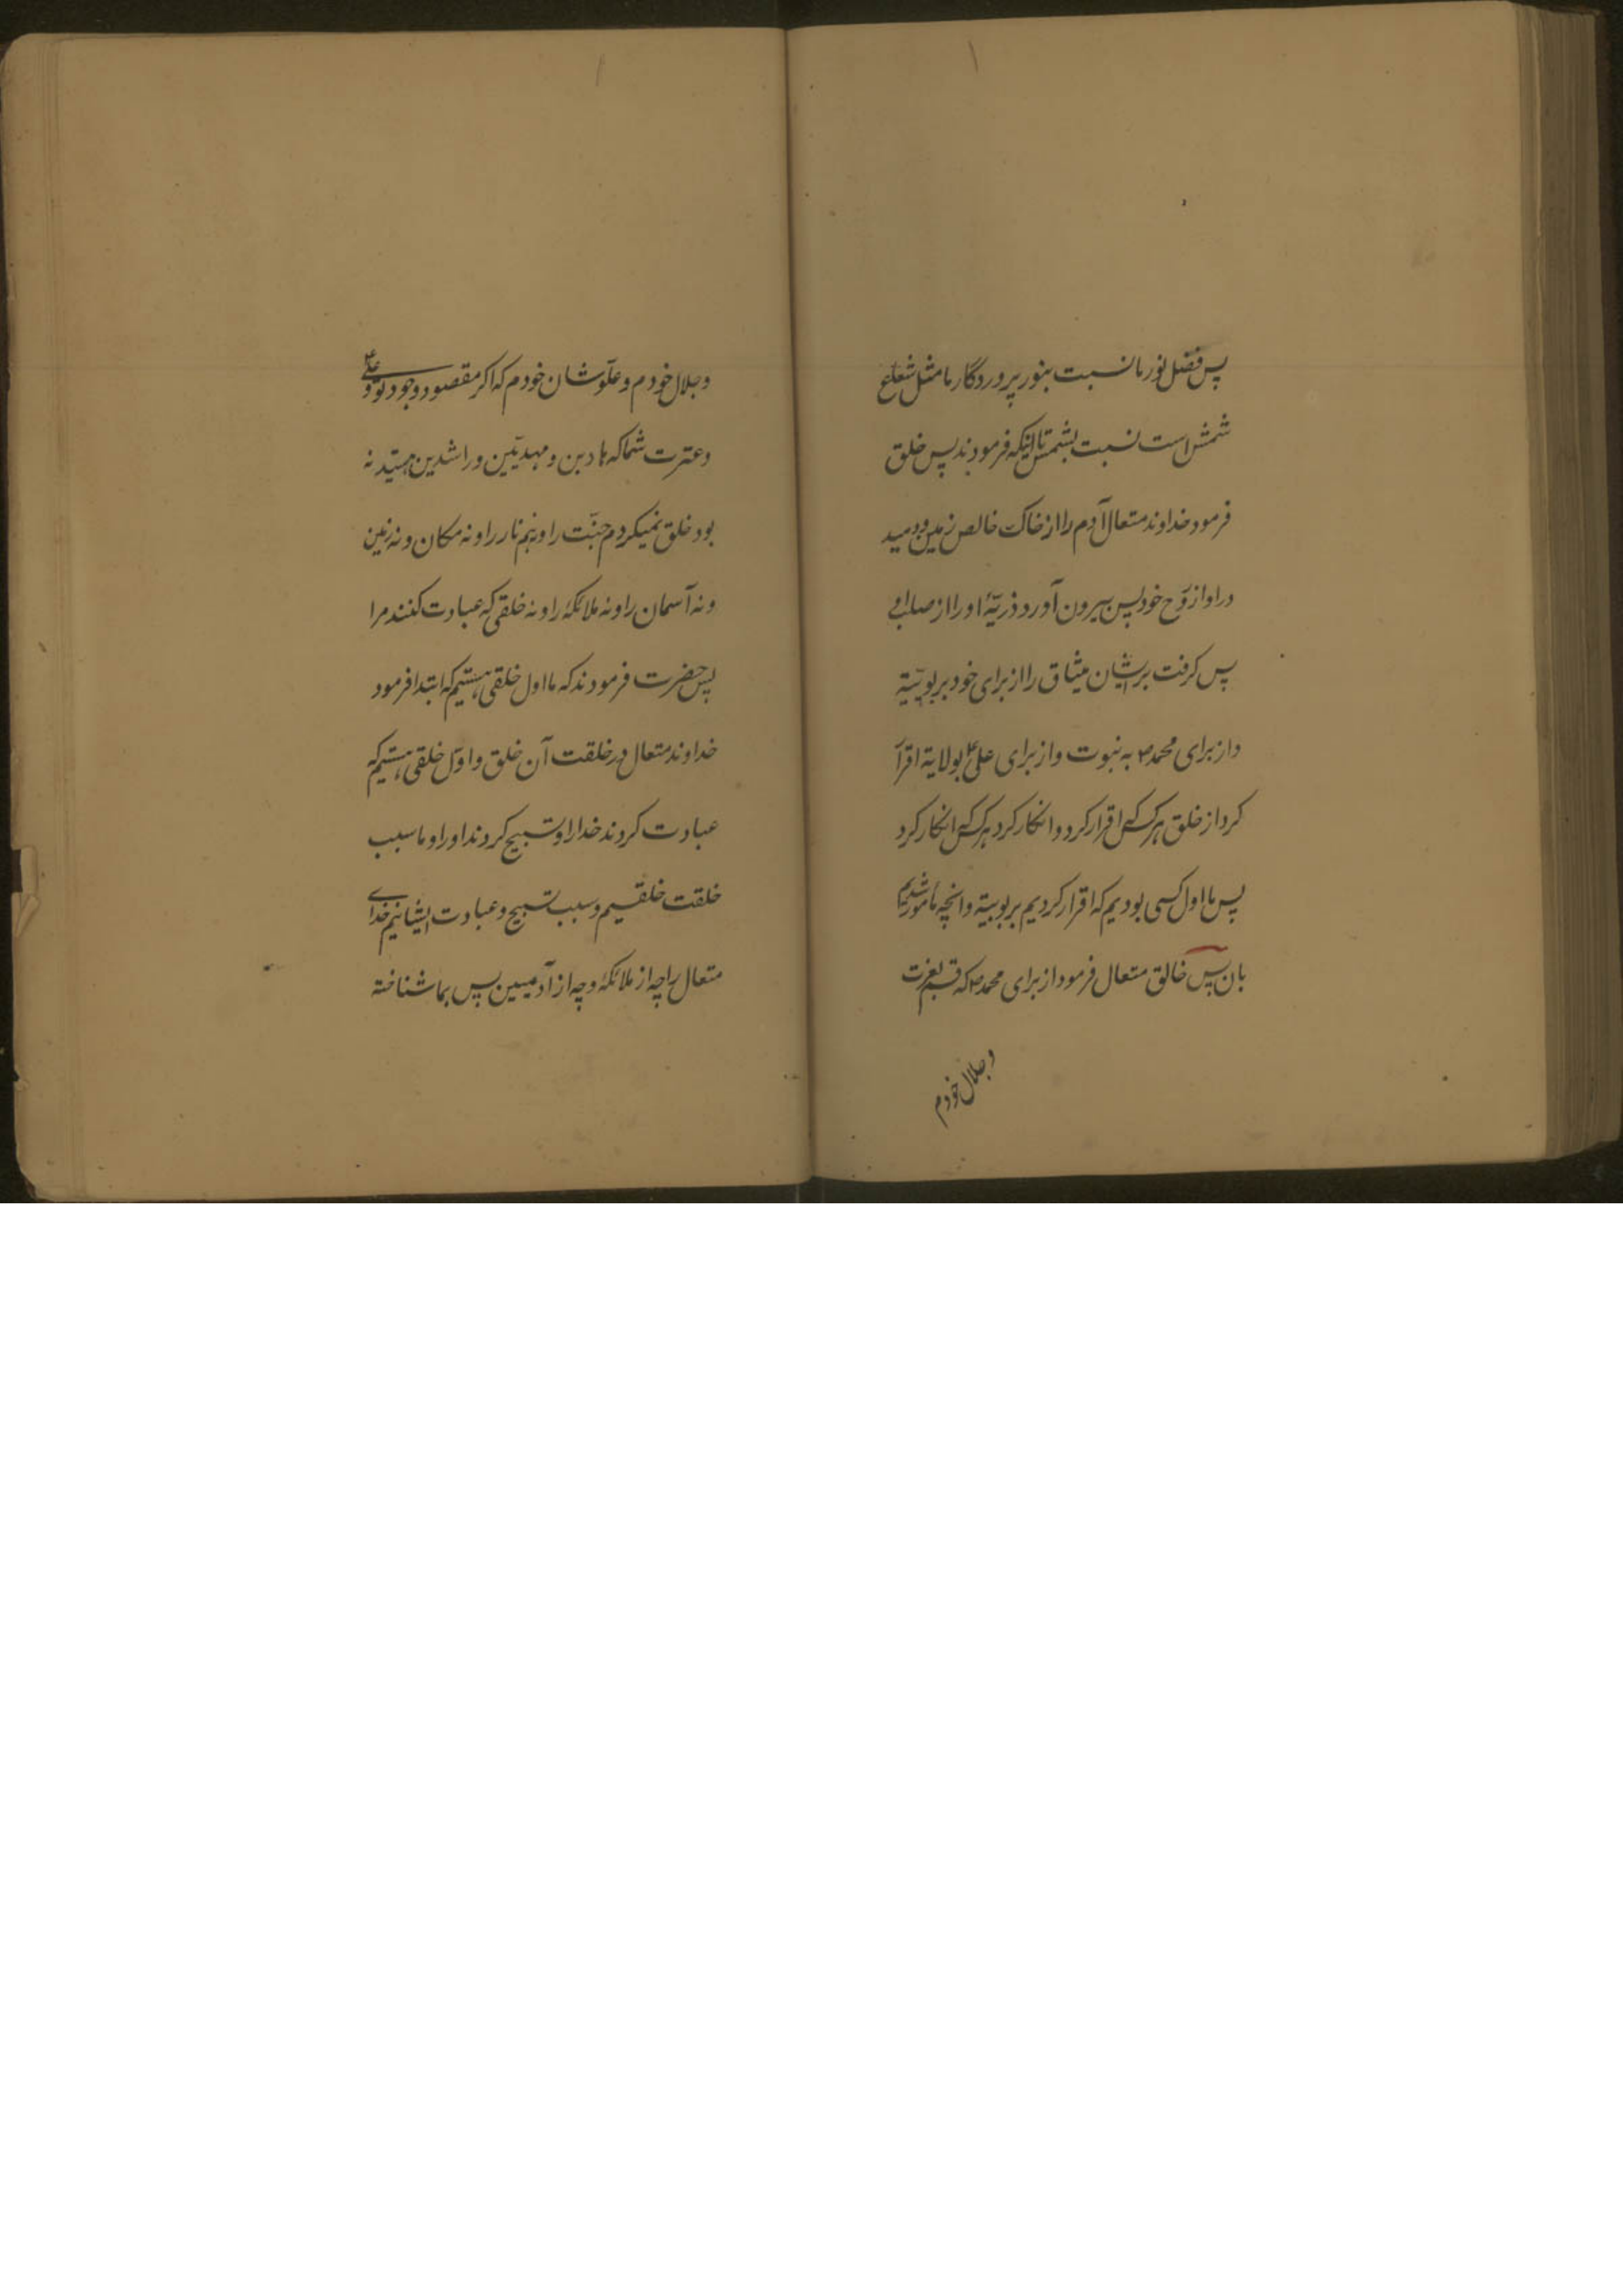 پس فضل نور ما نسبت بنور پروردگار ما مثل شعاع
شمس است نسبت بشمس تا اینکه فرمودند پس خلق
فرمود خداوند متعال آدم را از خاک خالص زمین و دمید
در او از روح خود پس بیرون آورد ذریّهٔ او را از صلب او
پس کرفت بر ایشان میثاق را از برای خود بربوبیّة
و از برای محمد ص به نبوت و از برای علی ع بولایة اقرار
کرد از خلق هر کس که اقرار کرد و انکار کرد هر کس که انکار کرد
پس ما اول کسی بودیم که اقرار کردیم بربوبیة و انچه مامور شدیم
بان پس خالق متعال فرمود از برای محمد ص که قسم بعزت
و جلال خودم
و جلال خودم و علوّ شان خودم که اکر مقصود وجود تو و علی ع
و عترت شما که هادین و مهدیّین و راشدین هستید نه
بود خلق نمیکردم جنّت را و نه نار را و نه مکان و نه زمین
و نه آسمان را و نه ملائکهٔ را و نه خلقی که عبادت کنند مرا
پس حضرت فرمودند که ما اول خلقی هستیم که ابتدا فرمود
خداوند متعال در خلقت آن خلق و اوّل خلقی هستیم که
عبادت کردند خدا را و تسبیح کردند او را و ما سبب
خلقت خلقیم و سبب تسبیح و عبادت ایشانیم خدای
متعال را چه از ملائکهٔ و چه از آدمیین پس بما شناخته